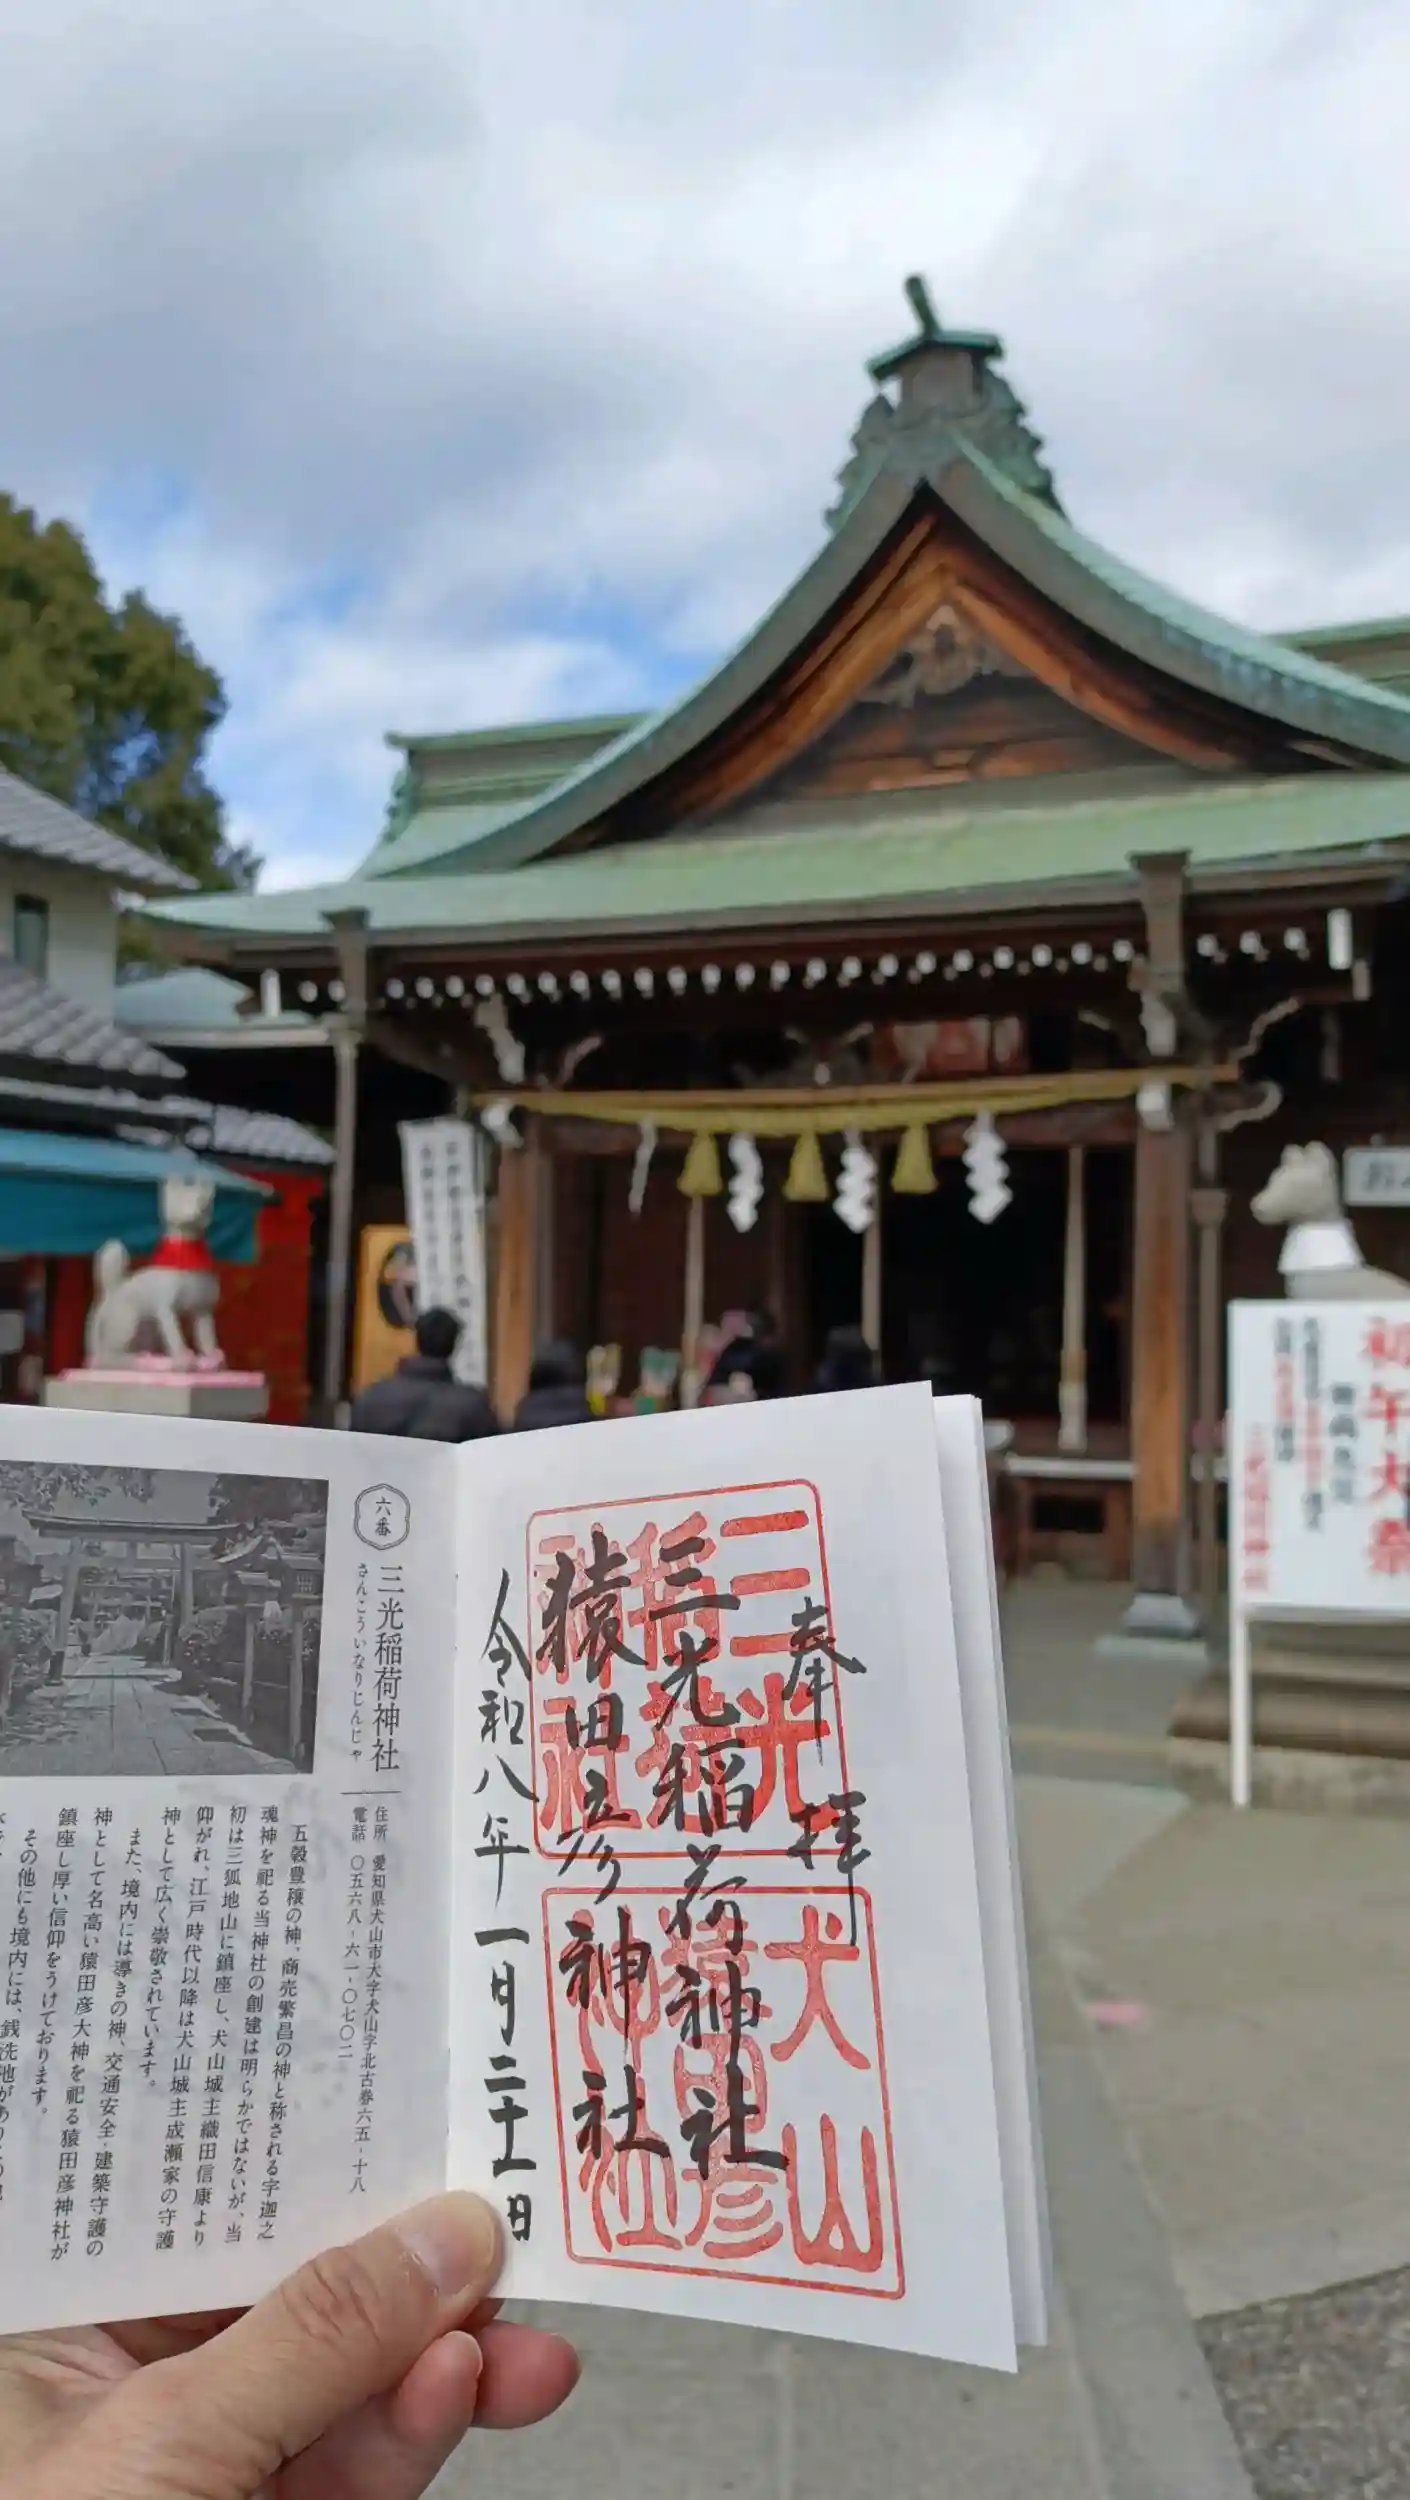 六番
三光稲荷神社
さんこういなりじんじゃ
住所 愛知県犬山市大字犬山字北古券六五-十八
電話 〇五六八-六一-〇七〇二
五穀豊穣の神、商売繁昌の神と称される宇迦之
魂神を祀る当神社の創建は明らかではないが、当
初は三狐地山に鎮座し、犬山城主織田信康より
仰がれ、江戸時代以降は犬山城主成瀬家の守護
神として広く崇敬されています。
また、境内には導きの神、交通安全・建築守護の
神として名高い猿田彦大神を祀る猿田彦神社が
鎮座し厚い信仰をうけております。
その他にも境内には、銭洗池が
奉拝
三光稲荷神社
猿田彦神社
令和八年一月二十一日
三光
稲荷
神社
犬山
猿田彦
神社
初午大祭